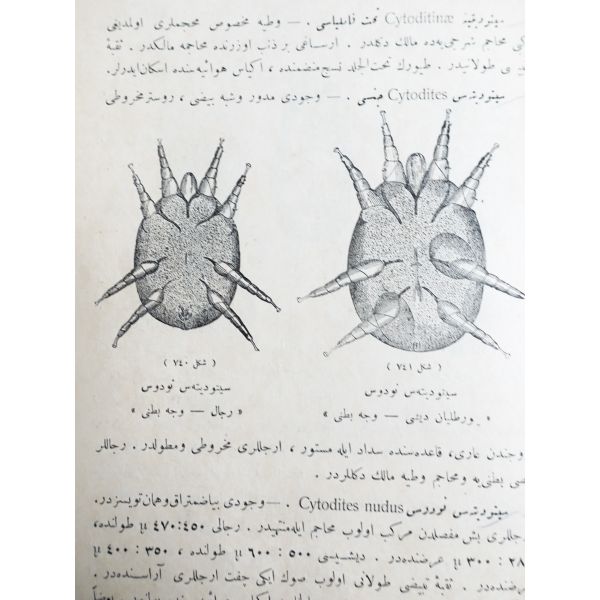 سیتودیتینه Cytoditinæ تحت فامیلیاسی . — وطیه مخصوص محجملری اولدیغی
کی محاجم شرجی‌یه‌ده مالك دكلدر . ارسساغی بر ذنب اوزرنده محاجمه مالكدر . ثقبهٔ
طولانیدر . طیورك تحت‌الجلد نسج منضمنده ، اكیاس هوائیه‌سنده اسكان‌ایدرلر .
سیتودیته‌س Cytodites جنسی . — وجودی مدور وشبه بیضی ، روستر مخروطی
( شكل ٧٤٠ )
سیتودیته‌س نودوس
« رجال — وجه بطنی »
( شكل ٧٤١ )
سیتودیته‌س نودوس
« یورطلیان دیشی — وجه بطنی »
وجندن عاری، قاعده‌سنده سداد ایله مستور ، ارجللری مخروطی ومطولدر . رجاللر
بطنی‌یه ومحاجم وطیه مالك دكللردر .
سیتودیته‌س نودوس Cytodites nudus . — وجودی بیاضمتراق وهمان تویسزدر.
ارجللری بش مفصلدن مركب اولوب محاجم ایله منتهیدر . رجالی ٤٥٠ : ٤٧٠ μ طولنده،
٢٨٠ : ٣٠٠ μ عرضنده‌در . دیشیسی ٥٠٠ : ٦٠٠ μ طولنده ، ٣٥٠ : ٤٠٠ μ
عرضنده‌در . ثقبهٔ تبیضی طولانی اولوب صوك ایكی چفت ارجللری آراسنده‌در .